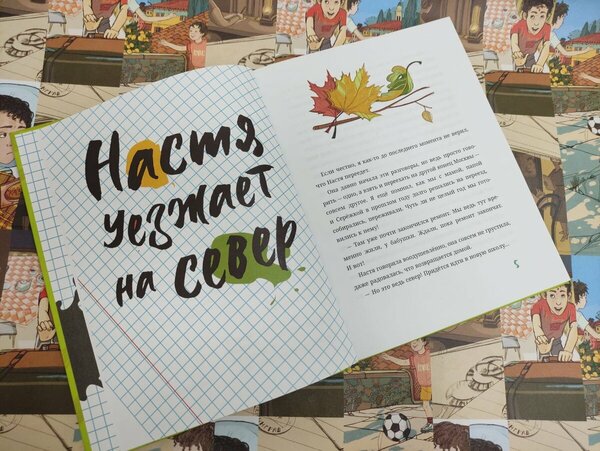 Настя
уезжает
на север
Если честно, я как-то до последнего момента не верил,
что Настя переедет.
Она давно начала эти разговоры, но ведь просто гово-
рить — одно, а взять и переехать на другой конец Москвы —
совсем другое. Я ещё помню, как мы с мамой, папой
и Серёжкой в прошлом году долго решались на переезд,
собирались, переживали. Чуть ли не целый год мы гото-
вились к нему!
— Там уже почти закончился ремонт. Мы ведь тут вре-
менно жили, у бабушки. Ждали, пока ремонт закончат.
И вот!
Настя говорила воодушевлённо, она совсем не грустила,
даже радовалась, что возвращается домой.
— Но это ведь север! Придётся идти в новую школу...
5